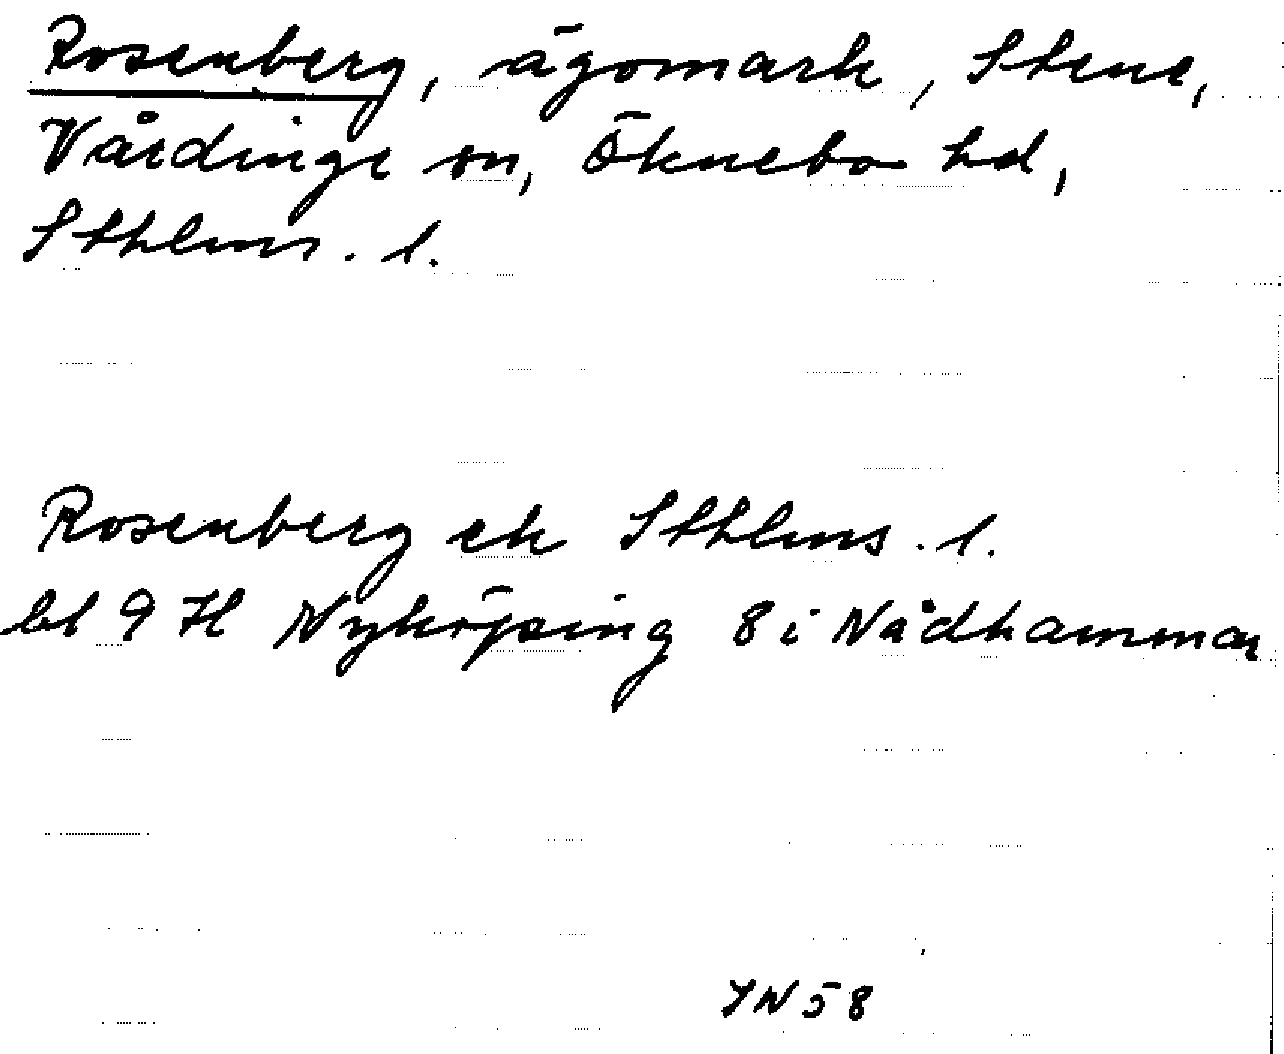 Rosenberg, ägomark, Stene,
Vårdinge sn, Öknebo hd,
Sthlms. l.
Rosenberg ek Sthlms. l.
bl 9 H Nyköping 8 i Nådhammar
YN 58